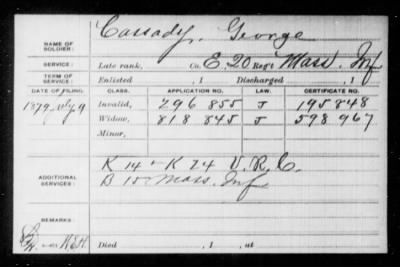 Cassady, George
NAME OF SOLDIER:
SERVICE: Late rank, Co. E, 20 Reg't Mass. Inf
TERM OF SERVICE: Enlisted , 1 Discharged , 1
DATE OF FILING. CLASS. APPLICATION NO. LAW. CERTIFICATE NO.
1879, July 9 Invalid, 296 855 J 195848
Widow, 818 845 J 598 967
Minor,
K 14 + K 24 V.R.C.
ADDITIONAL SERVICES: B 15 Mass. Inf
REMARKS:
Died , 1 , at